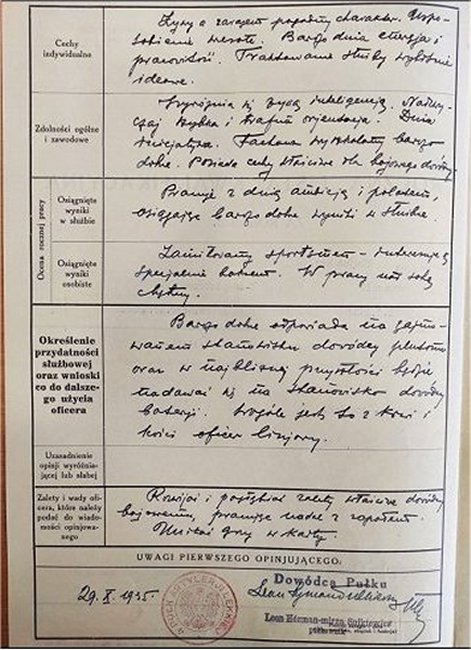 Cechy
indywidualne
Żywy a zarazem pogodny charakter. Uspo-
sobienie wesołe. Bardzo duża energja i
pracowitość. Traktowanie służby wybitnie
ideowe.
Zdolności ogólne
i zawodowe
Wyróżnia się żywą inteligencją. Nadzwy-
czaj szybka i trafna orjentacja. Duża
inicjatywa. Fachowo wyszkolony bardzo
dobrze. Posiada cechy właściwe dla bojowego dowódcy.
Ocena rocznej pracy
Osiągnięte
wyniki
w służbie
Pracuje z dużą ambicją i polotem,
osiągając bardzo dobre wyniki w służbie.
Osiągnięte
wyniki
osobiste
Zamiłowany sportsmen - interesuje się
specjalnie koniem. W pracy nad sobą
chętny.
Określenie
przydatności
służbowej
oraz wnioski
co do dalsze-
go użycia
oficera
Bardzo dobrze odpowiada na zajmo-
wanem stanowisku dowódcy plutonu
oraz w najbliższej przyszłości będzie
nadawać się na stanowisko dowódcy
baterji. Wogóle jest to z krwi i
kości oficer linjowy.
Uzasadnienie
opinji wyróżnia-
jącej lub słabej
Zalety i wady ofi-
cera, które należy
podać do wiado-
mości opinjowa-
nego
Rozwijać i pogłębiać zalety właściwe dowódcy
bojowemu, pracując nadal z zapałem.
Unikać gry w karty.
UWAGI PIERWSZEGO OPINJUJĄCEGO:
29. X. 1935.
Dowódca Pułku
Leon Herman-mirza Sulkiewicz
pułkownik